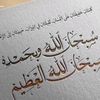 كلمتان خفيفتان على اللسان ثقيلتان في الميزان حبيبتان إلى
سُبْحَانَ اللهِ وَبِحَمْدِهِ
سُبْحَانَ اللهِ الْعَظِيمِ